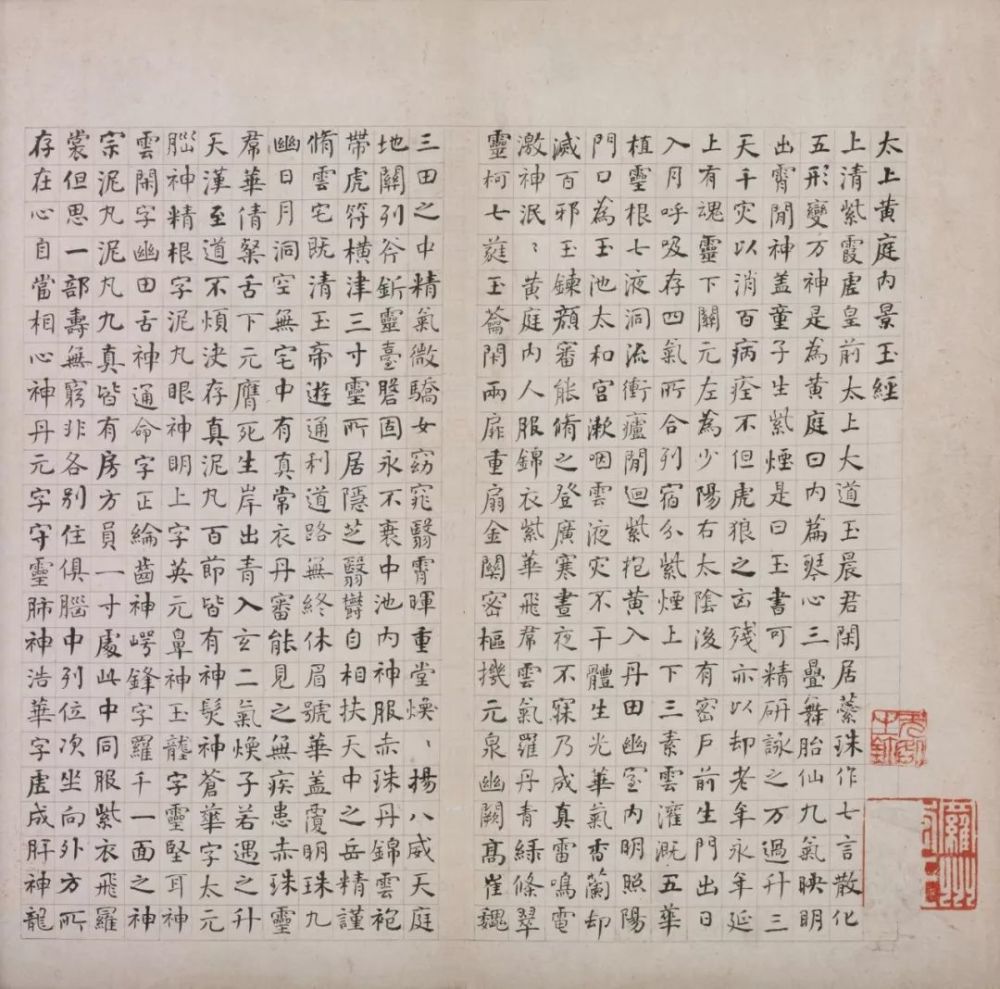 太上黃庭內景玉經
上清紫霞虛皇前太上大道玉晨君閑居蘂珠作七言散化
五形變万神是為黃庭曰內篇琴心三疊舞胎仙九氣映明
出霄閒神盖童子生紫煙是曰玉書可精研詠之万過升三
天千灾以消百病痊不但虎狼之凶殘亦以却老年永年延
上有魂靈下關元左為少陽右太陰後有密戶前生門出日
入月呼吸存四氣所合列宿分紫煙上下三素雲灌溉五華
植靈根七液洞流衝廬閒迴紫抱黃入丹田幽室內明照陽
門口為玉池太和宮漱咽雲液灾不干體生光華氣香蘭却
滅百邪玉鍊顏審能脩之登廣寒晝夜不寐乃成真雷鳴電
激神泯〻黃庭內人服錦衣紫華飛帬雲氣羅丹青綠條翠
靈柯七蕤玉蘥閑兩扉重扇金關密樞機元泉幽闕高崔巍
三田之中精氣微驕女窈窕翳霄暉重堂煥〻揚八威天庭
地關列斧釿靈臺磐固永不衰中池內神服赤珠丹錦雲袍
帶虎符橫津三寸靈所居隱芝翳欝自相扶天中之岳精謹
脩雲宅既清玉帝遊通利道路無終休眉號華盖覆明珠九
幽日月洞空無宅中有真常衣丹審能見之無疾患赤珠靈
帬華倩粲舌下元膺死生岸出青入玄二氣煥子若遇之升
天漢至道不煩決存真泥丸百節皆有神髮神蒼華字太元
腦神精根字泥丸眼神明上字英元鼻神玉壟字靈堅耳神
雲閑字幽田舌神通命字正綸齒神崿鋒字羅千一面之神
宗泥丸泥丸九真皆有房方員一寸處此中同服紫衣飛羅
裳但思一部壽無窮非各別住俱腦中列位次坐向外方所
存在心自當相心神丹元字守靈肺神浩華字虛成肝神龍